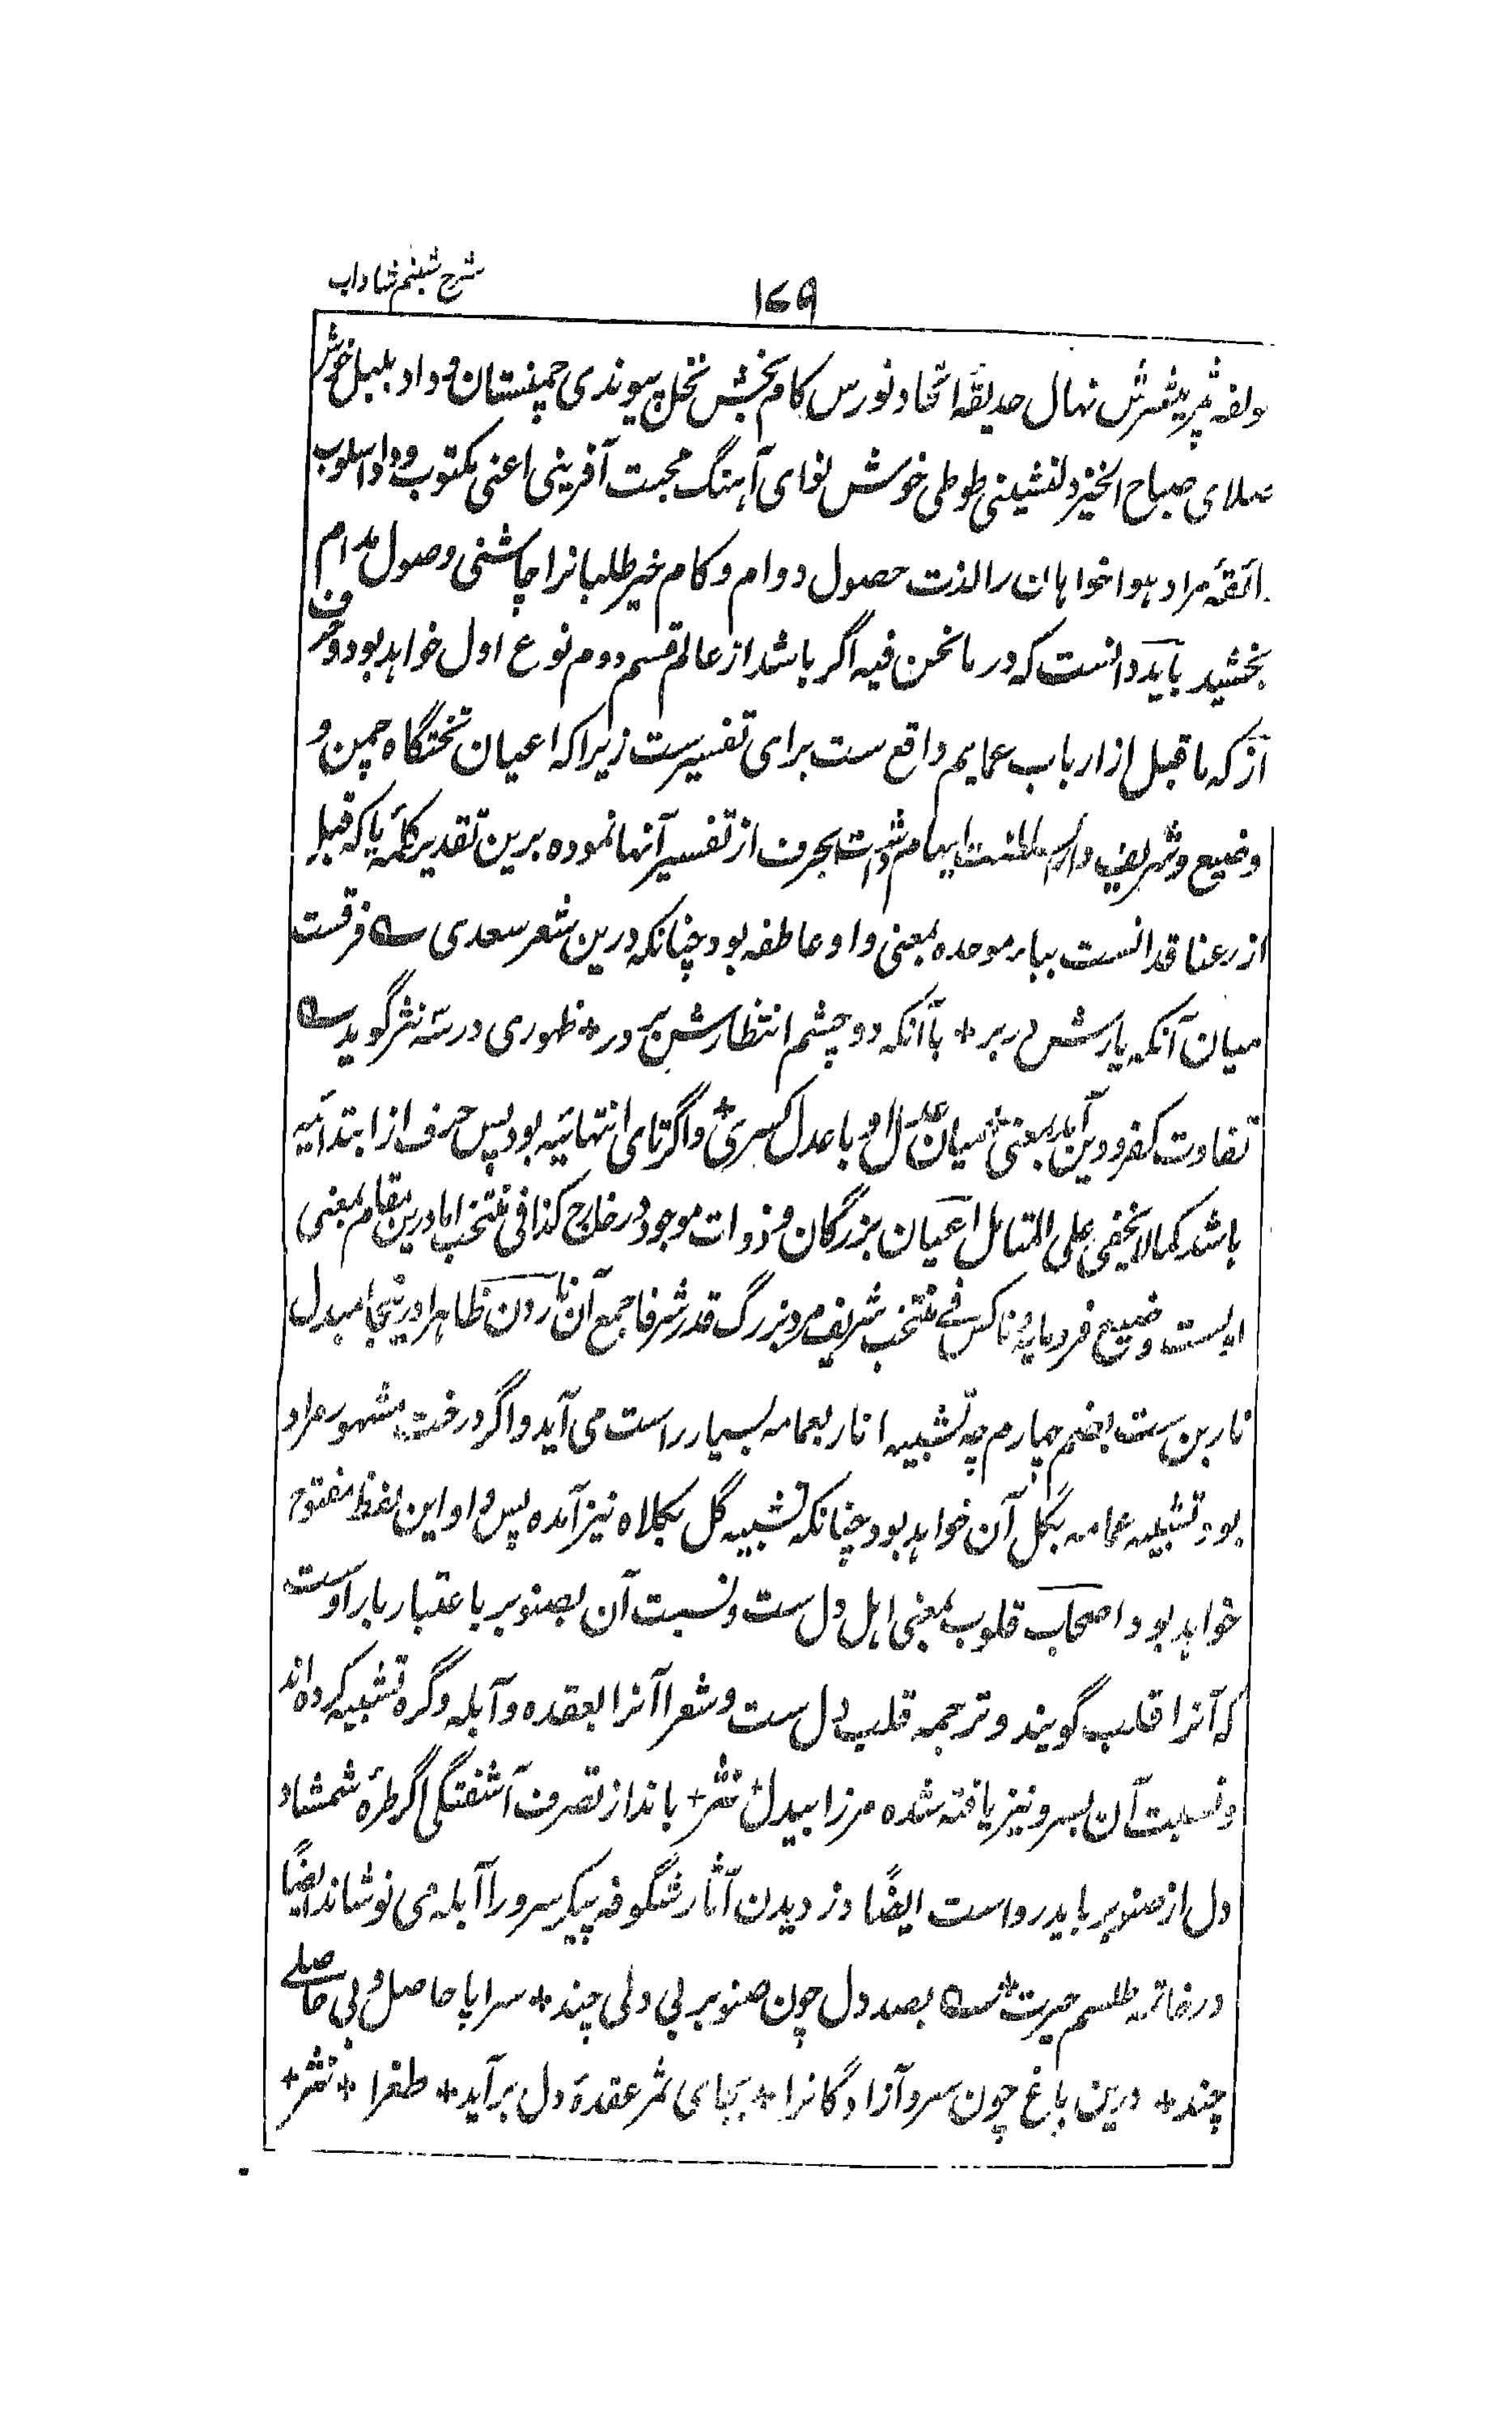 شرح شبنم شاداب
۱۷۹
ولفه ثمر پیشرش نهال حدیقهٔ اتحاد نورس کام بخش نخل پیوندی چمنستان وداد بلبل خوش
صلای صباح الخیر دلنشینی طوطی خوش نوای آهنگ محبت آفرینی اعنی مکتوب وداد اسلوب
ذائقهٔ مراد هواخواهان را لذت حصول دوام و کام خیرطلبانرا چاشنی وصول مدام
بخشید باید دانست که در مانحن فیه اگر باشد از عالم قسم دوم نوع اول خواهد بود و حرف
از که ما قبل از ارباب عمایم واقع ست برای تفسیرست زیرا که اعیان تختگاه چمن و
وضیع و شریف دار السلطنت ابهام داشت بحرف از تفسیر آنها نموده برین تقدیر کلمهٔ با که قبل
از رعنا قدانست بباء موحده بمعنی واو عاطفه بود چنانکه درین شعر سعدی ؎ فرقست
میان آنکه یارش در بر + با آنکه دو چشم انتظارش بر در + ظهوری در سه نثر گوید ؎
تفاوت کفر و دین آمد بمعنی + میان عدل او با عدل کسری + و اگر تای انتهائیه بود پس حرف از ابتدائیه
باشد کمالا یخفی علی المتامل اعیان بزرگان و ذوات موجود در خارج کذا فی منتخب اما درین مقام بمعنی
اولست وضیع فرومایه و ناکس فی منتخب شریف مرد بزرگ قدر شرفا جمع آن نارون ظاهرا درینجا مبدل
ناربن ست بضم چهارم چه تشبیه انار بعمامه بسیار راست می آید و اگر درخت مشهور مراد
بود تشبیه عمامه بگل آن خواهد بود چنانکه تشبیه گل بکلاه نیز آمده پس واو این لفظ مفتوح
خواهد بود اصحاب قلوب بمعنی اهل دل ست و نسبت آن بصنوبر باعتبار بار اوست
که آنرا قلب گویند و ترجمه قلب دل ست و شعرا آنرا بعقده و آبله و گره تشبیه کرده اند
و نسبت آن بسرو نیز یافته شده مرزا بیدل نثر + بانداز تصرف آشفتگی اگر طرهٔ شمشاد
دل از صنوبر باید رواست ایضًا دزدیدن آثار شگوفه پیکر سرو را آبله می نوشاند ایضًا
در خاتمه طلسم حیرت ؎ بصد دل چون صنوبر بی دلی چند + سراپا حاصل و بی حاصلے
چند + درین باغ چون سرو آزادگانرا + بجای ثمر عقدهٔ دل برآید + طغرا + نثر +